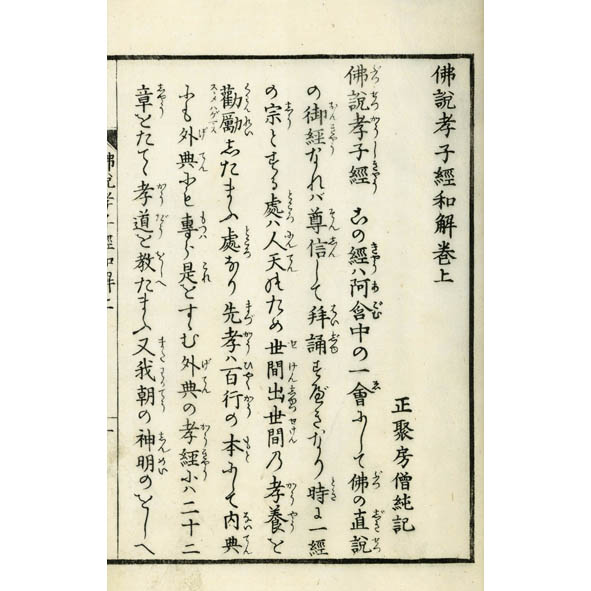 佛說孝子經和解卷上
正聚房僧純記
佛說孝子經 この經ハ阿含中の一會にして佛の直說
の御經なれバ尊信して拜誦すべきなり時に一經
の宗とする處ハ人天のため世間出世間乃孝養を
勸勵したまふ處なり先孝ハ百行の本にして內典
にも外典にも專ら是をすゝむ外典の孝經にハ二十二
章をたてゝ孝道を教たまふ又我朝の神明のをしへ
佛說孝子經和解上